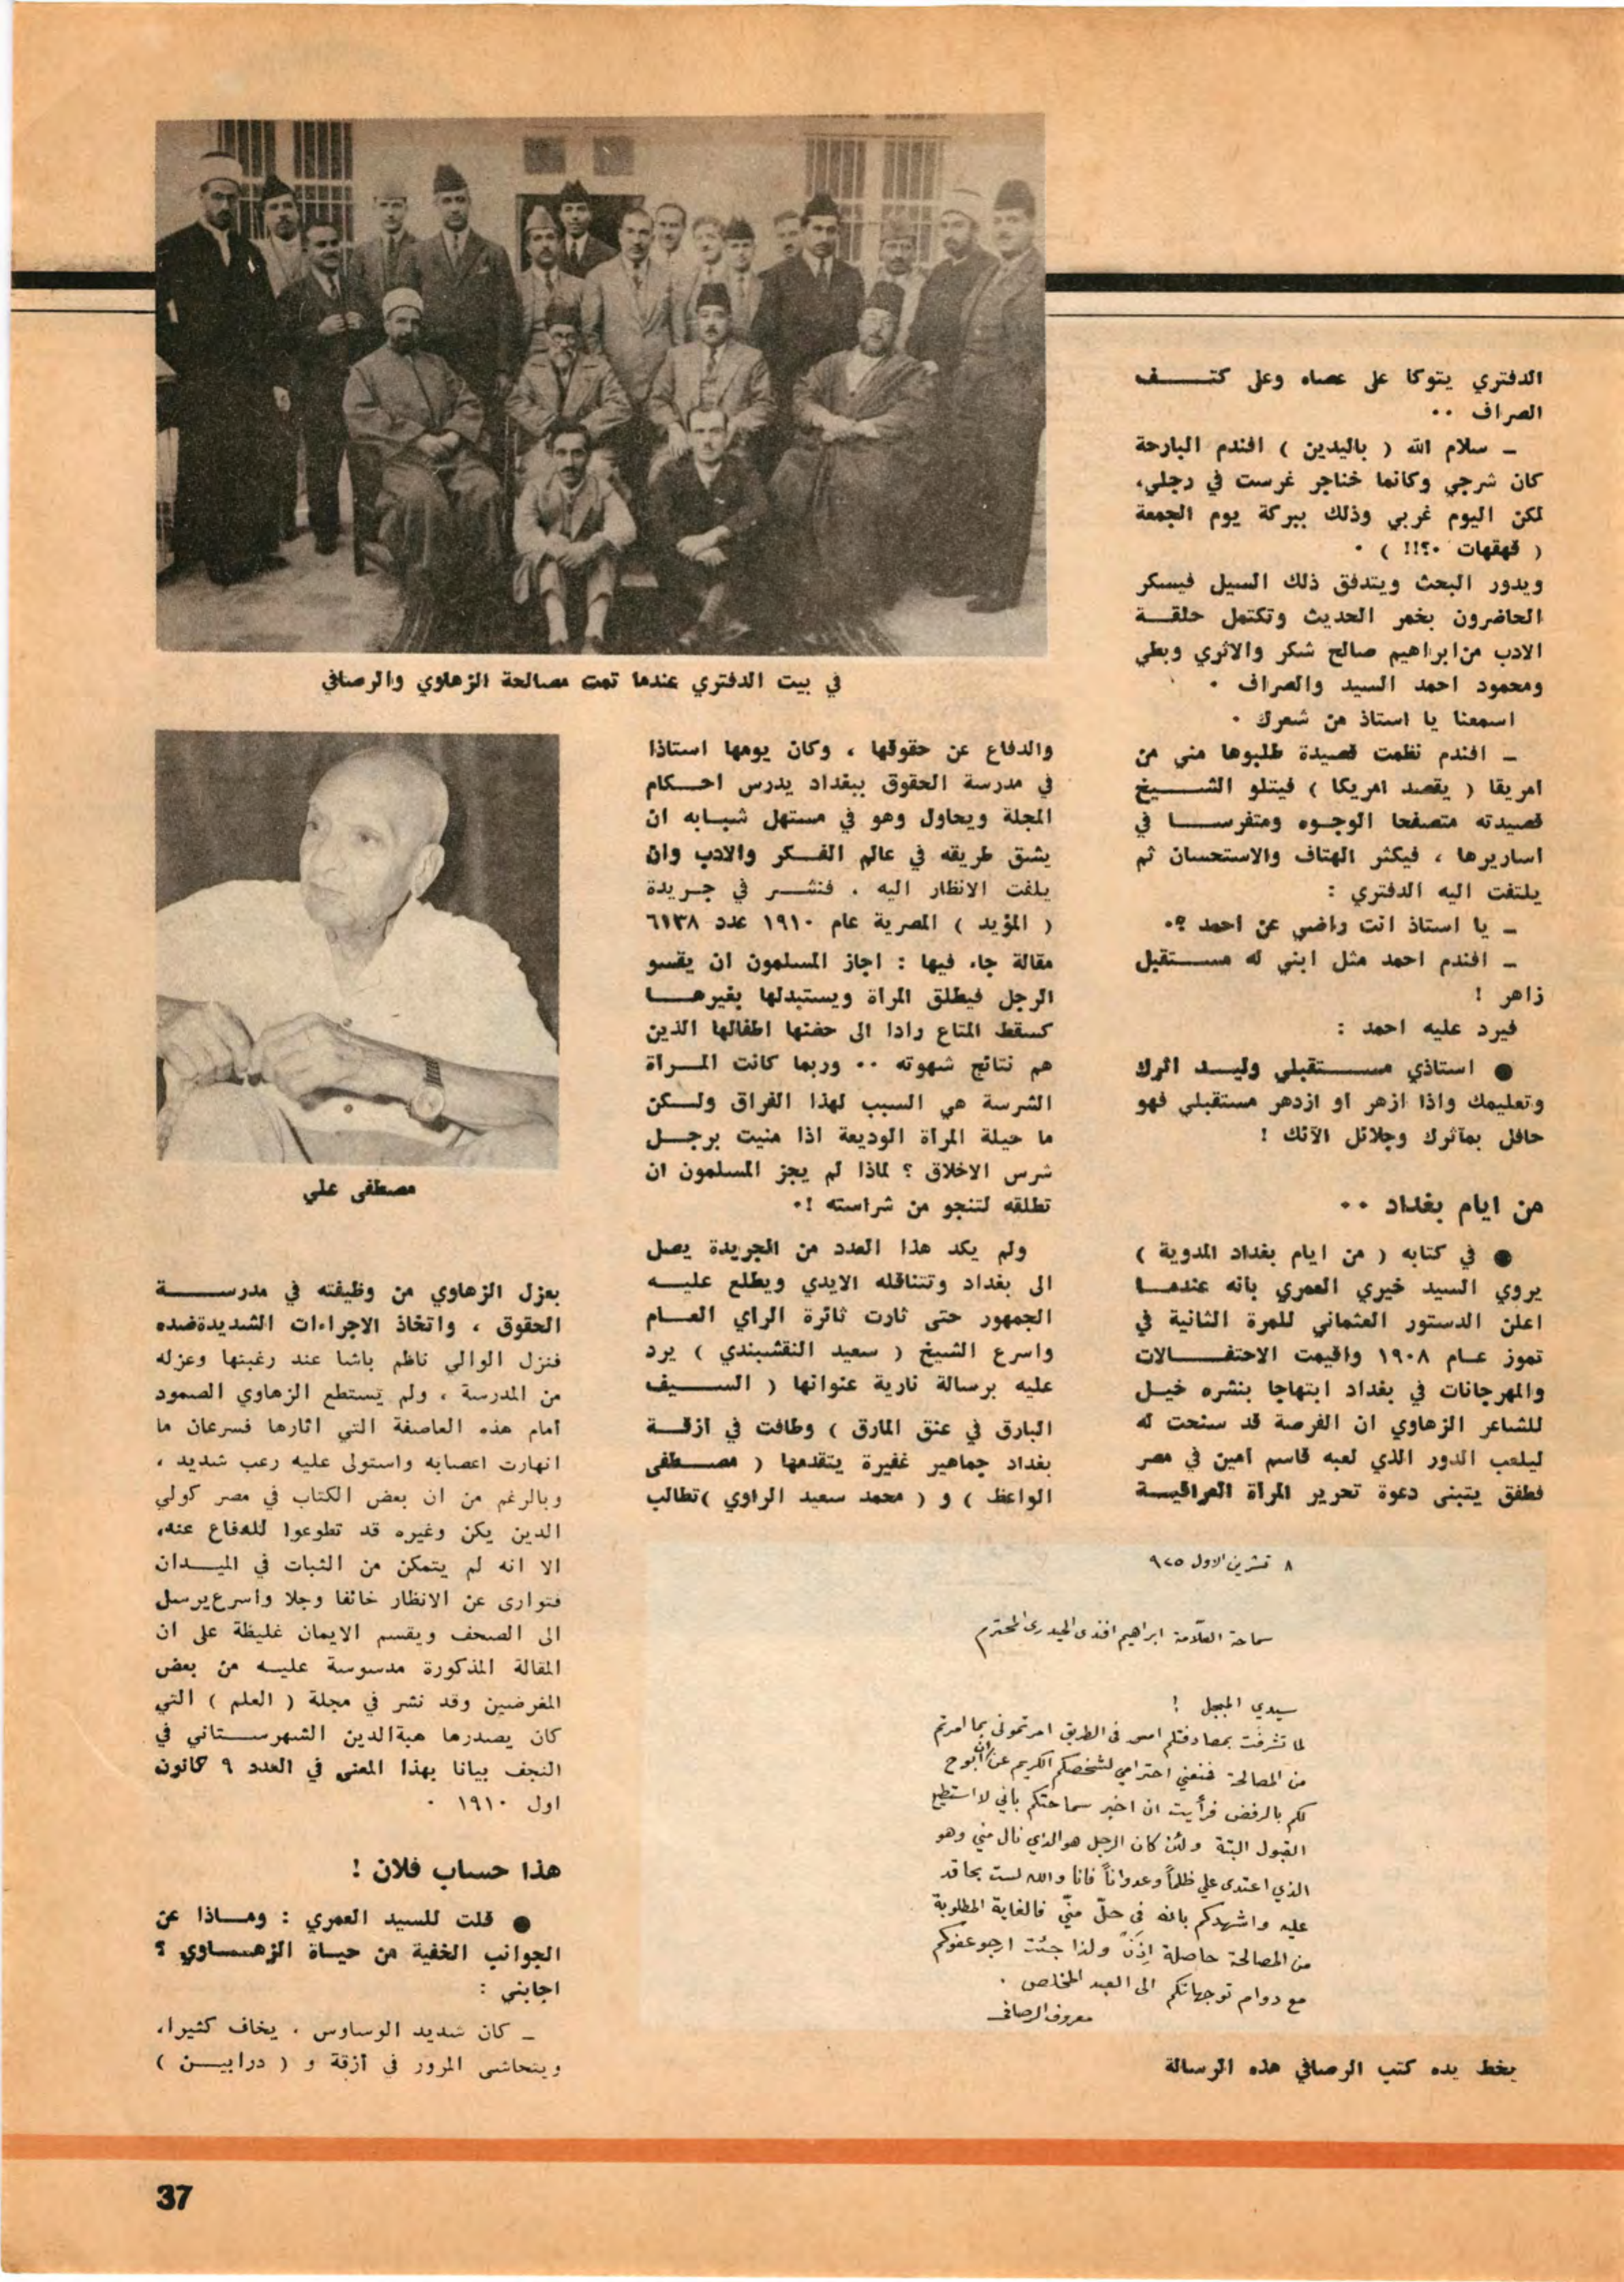 الدفتري يتوكا على عصاه وعلى كتـــــف
الصراف ٠٠
ـ سلام الله ( باليدين ) افندم البارحة
كان شرجي وكانما خناجر غرست في رجلي،
لكن اليوم غربي وذلك ببركة يوم الجمعة
( قهقهات ٠؟!! ) ٠
ويدور البحث ويتدفق ذلك السيل فيسكر
الحاضرون بخمر الحديث وتكتمل حلقــة
الادب من ابراهيم صالح شكر والاثري وبطي
ومحمود احمد السيد والصراف ٠
اسمعنا يا استاذ من شعرك ٠
ـ افندم نظمت قصيدة طلبوها مني من
امريقا ( يقصد امريكا ) فيتلو الشـــيخ
قصيدته متصفحا الوجوه ومتفرســـا في
اساريرها ، فيكثر الهتاف والاستحسان ثم
يلتفت اليه الدفتري :
ـ يا استاذ انت راضي عن احمد ؟٠
ـ افندم احمد مثل ابني له مســـتقبل
زاهر !
فيرد عليه احمد :
● استاذي مســـتقبلي وليــد اثرك
وتعليمك واذا ازهر او ازدهر مستقبلي فهو
حافل بمآثرك وجلائل الآئك !
من ايام بغداد ٠٠
● في كتابه ( من ايام بغداد المدوية )
يروي السيد خيري العمري بانه عندمــا
اعلن الدستور العثماني للمرة الثانية في
تموز عــام ١٩٠٨ واقيمت الاحتفـــالات
والمهرجانات في بغداد ابتهاجا بنشره خيــل
للشاعر الزهاوي ان الفرصة قد سنحت له
ليلعب الدور الذي لعبه قاسم امين في مصر
فطفق يتبنى دعوة تحرير المرأة العراقيــة
في بيت الدفتري عندما تمت مصالحة الزهاوي والرصافي
والدفاع عن حقوقها ، وكان يومها استاذا
في مدرسة الحقوق ببغداد يدرس احــكام
المجلة ويحاول وهو في مستهل شبــابه ان
يشق طريقه في عالم الفــكر والادب وان
يلفت الانظار اليه ٠ فنشـــر في جــريدة
( المؤيد ) المصرية عام ١٩١٠ عدد ٦١٣٨
مقالة جاء فيها : اجاز المسلمون ان يقسو
الرجل فيطلق المرأة ويستبدلها بغيرهـــا
كسقط المتاع رادا الى حضنها اطفالها الذين
هم نتائج شهوته ٠٠ وربما كانت المـــرأة
الشرسة هي السبب لهذا الفراق ولــكن
ما حيلة المرأة الوديعة اذا منيت برجــل
شرس الاخلاق ؟ لماذا لم يجز المسلمون ان
تطلقه لتنجو من شراسته !٠
ولم يكد هذا العدد من الجريدة يصل
الى بغداد وتتناقله الايدي ويطلع عليــه
الجمهور حتى ثارت ثائرة الراي العــام
واسرع الشيخ ( سعيد النقشبندي ) يرد
عليه برسالة نارية عنوانها ( الســــيف
البارق في عنق المارق ) وطافت في ازقــة
بغداد جماهير غفيرة يتقدمها ( مصــطفى
الواعظ ) و ( محمد سعيد الراوي )تطالب
مصطفى علي
بعزل الزهاوي من وظيفته في مدرســــة
الحقوق ، واتخاذ الاجراءات الشديدةضده
فنزل الوالي ناظم باشا عند رغبتها وعزله
من المدرسة ، ولم يستطع الزهاوي الصمود
امام هذه العاصفة التي اثارها فسرعان ما
انهارت اعصابه واستولى عليه رعب شديد ،
وبالرغم من ان بعض الكتاب في مصر كولي
الدين يكن وغيره قد تطوعوا للدفاع عنه،
الا انه لم يتمكن من الثبات في الميــدان
فتوارى عن الانظار خائفا وجلا واسرع يرسل
الى الصحف ويقسم الايمان غليظة على ان
المقالة المذكورة مدسوسة عليــه من بعض
المغرضين وقد نشر في مجلة ( العلم ) التي
كان يصدرها هبةالدين الشهرســـتاني في
النجف بيانا بهذا المعنى في العدد ٩ كانون
اول ١٩١٠ ٠
هذا حساب فلان !
● قلت للسيد العمري : ومــاذا عن
الجوانب الخفية من حيــاة الزهـــاوي ؟
اجابني :
ـ كان شديد الوساوس ٠ يخاف كثيرا،
ويتحاشى المرور في أزقة و ( درابيـــن )
٨ تشرين الاول ٩٢٥
سماحة العلّامة ابراهيم افندي الحيدري المحترم
سيدي المبجل !
لما تشرفت بمصادفتكم امس في الطريق امرتموني بما امرتم
من المصالحة فمنعني احترامي لشخصكم الكريم عن ان ابوح
لكم بالرفض فرأيت ان اخبر سماحتكم باني لا استطيع
القبول البتة ولئن كان الرجل هو الذي نال مني وهو
الذي اعتدى علي ظلماً وعدواناً فانا والله لست بحاقد
عليه واشهدكم بانه في حلّ منّي فالغاية المطلوبة
من المصالحة حاصلة إذَنْ ولذا جئت ارجو عفوكم
مع دوام توجهاتكم الى العبد المخلص ٠
معروف الرصافي
بخط يده كتب الرصافي هذه الرسالة
37